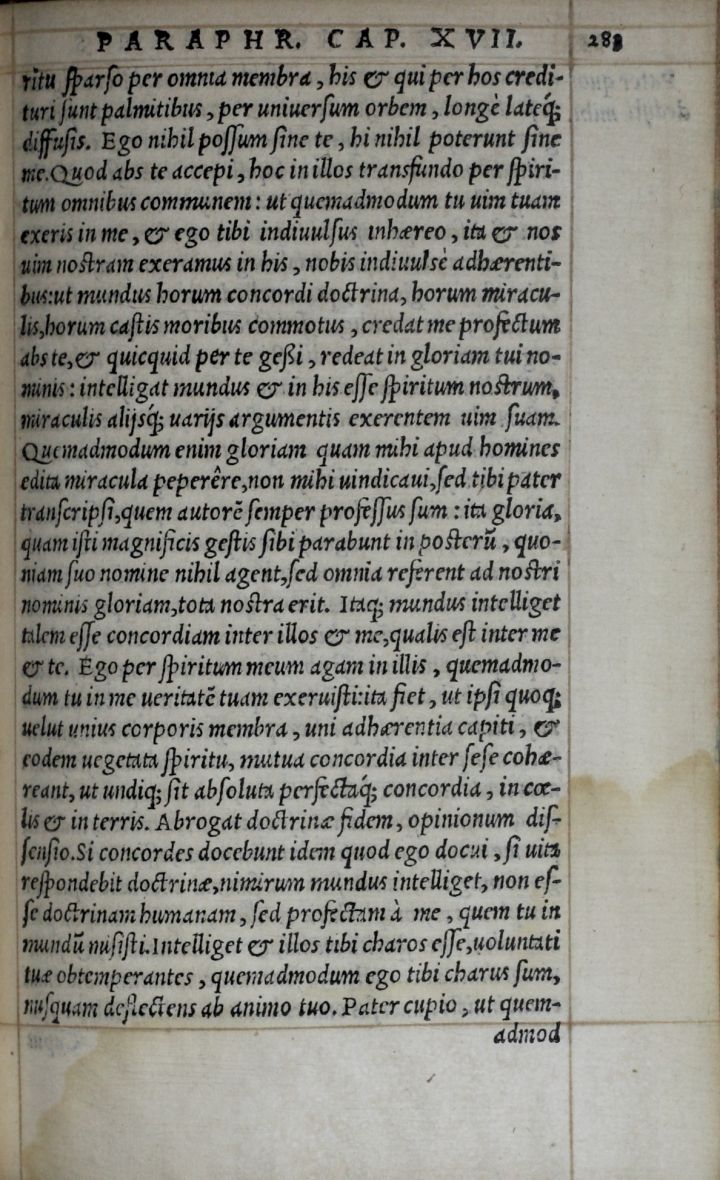 PARAPHR. CAP. XVII. 283
ritu ſparſo per omnia membra, his & qui per hos credi-
turi ſunt palmitibus, per uniuerſum orbem, longè lateq́;
diffuſis. Ego nihil poſſum ſine te, hi nihil poterunt ſine
me. Quod abs te accepi, hoc in illos transfundo per ſpiri-
tum omnibus communem: ut quemadmodum tu uim tuam
exeris in me, & ego tibi indiuulſus inhæreo, ita & nos
uim noſtram exeramus in his, nobis indiuulsè adhærenti-
bus: ut mundus horum concordi doctrina, horum miracu-
lis, horum caſtis moribus commotus, credat me profectum
abs te, & quicquid per te geßi, redeat in gloriam tui no-
minis: intelligat mundus & in his eſſe ſpiritum noſtrum,
miraculis alijsq́; uarijs argumentis exerentem uim ſuam.
Quemadmodum enim gloriam quam mihi apud homines
edita miracula peperêre, non mihi uindicaui, ſed tibi pater
tranſcripſi, quem autorē ſemper profeſſus ſum: ita gloria,
quam iſti magnificis geſtis ſibi parabunt in poſterū, quo-
niam ſuo nomine nihil agent, ſed omnia referent ad noſtri
nominis gloriam, tota noſtra erit. Itaq; mundus intelliget
talem eſſe concordiam inter illos & me, qualis eſt inter me
& te. Ego per ſpiritum meum agam in illis, quemadmo-
dum tu in me ueritatē tuam exeruiſti: ita fiet, ut ipſi quoq;
uelut unius corporis membra, uni adhærentia capiti, &
eodem uegetata ſpiritu, mutua concordia inter ſeſe cohæ-
reant, ut undiq; ſit abſoluta perfectaq́; concordia, in cœ-
lis & in terris. Abrogat doctrinæ fidem, opinionum diſ-
ſenſio. Si concordes docebunt idem quod ego docui, ſi uita
reſpondebit doctrinæ, nimirum mundus intelliget, non eſ-
ſe doctrinam humanam, ſed profectam à me, quem tu in
mundū miſiſti. Intelliget & illos tibi charos eſſe, uoluntati
tuæ obtemperantes, quemadmodum ego tibi charus ſum,
nuſquam deflectens ab animo tuo. Pater cupio, ut quem-
admod